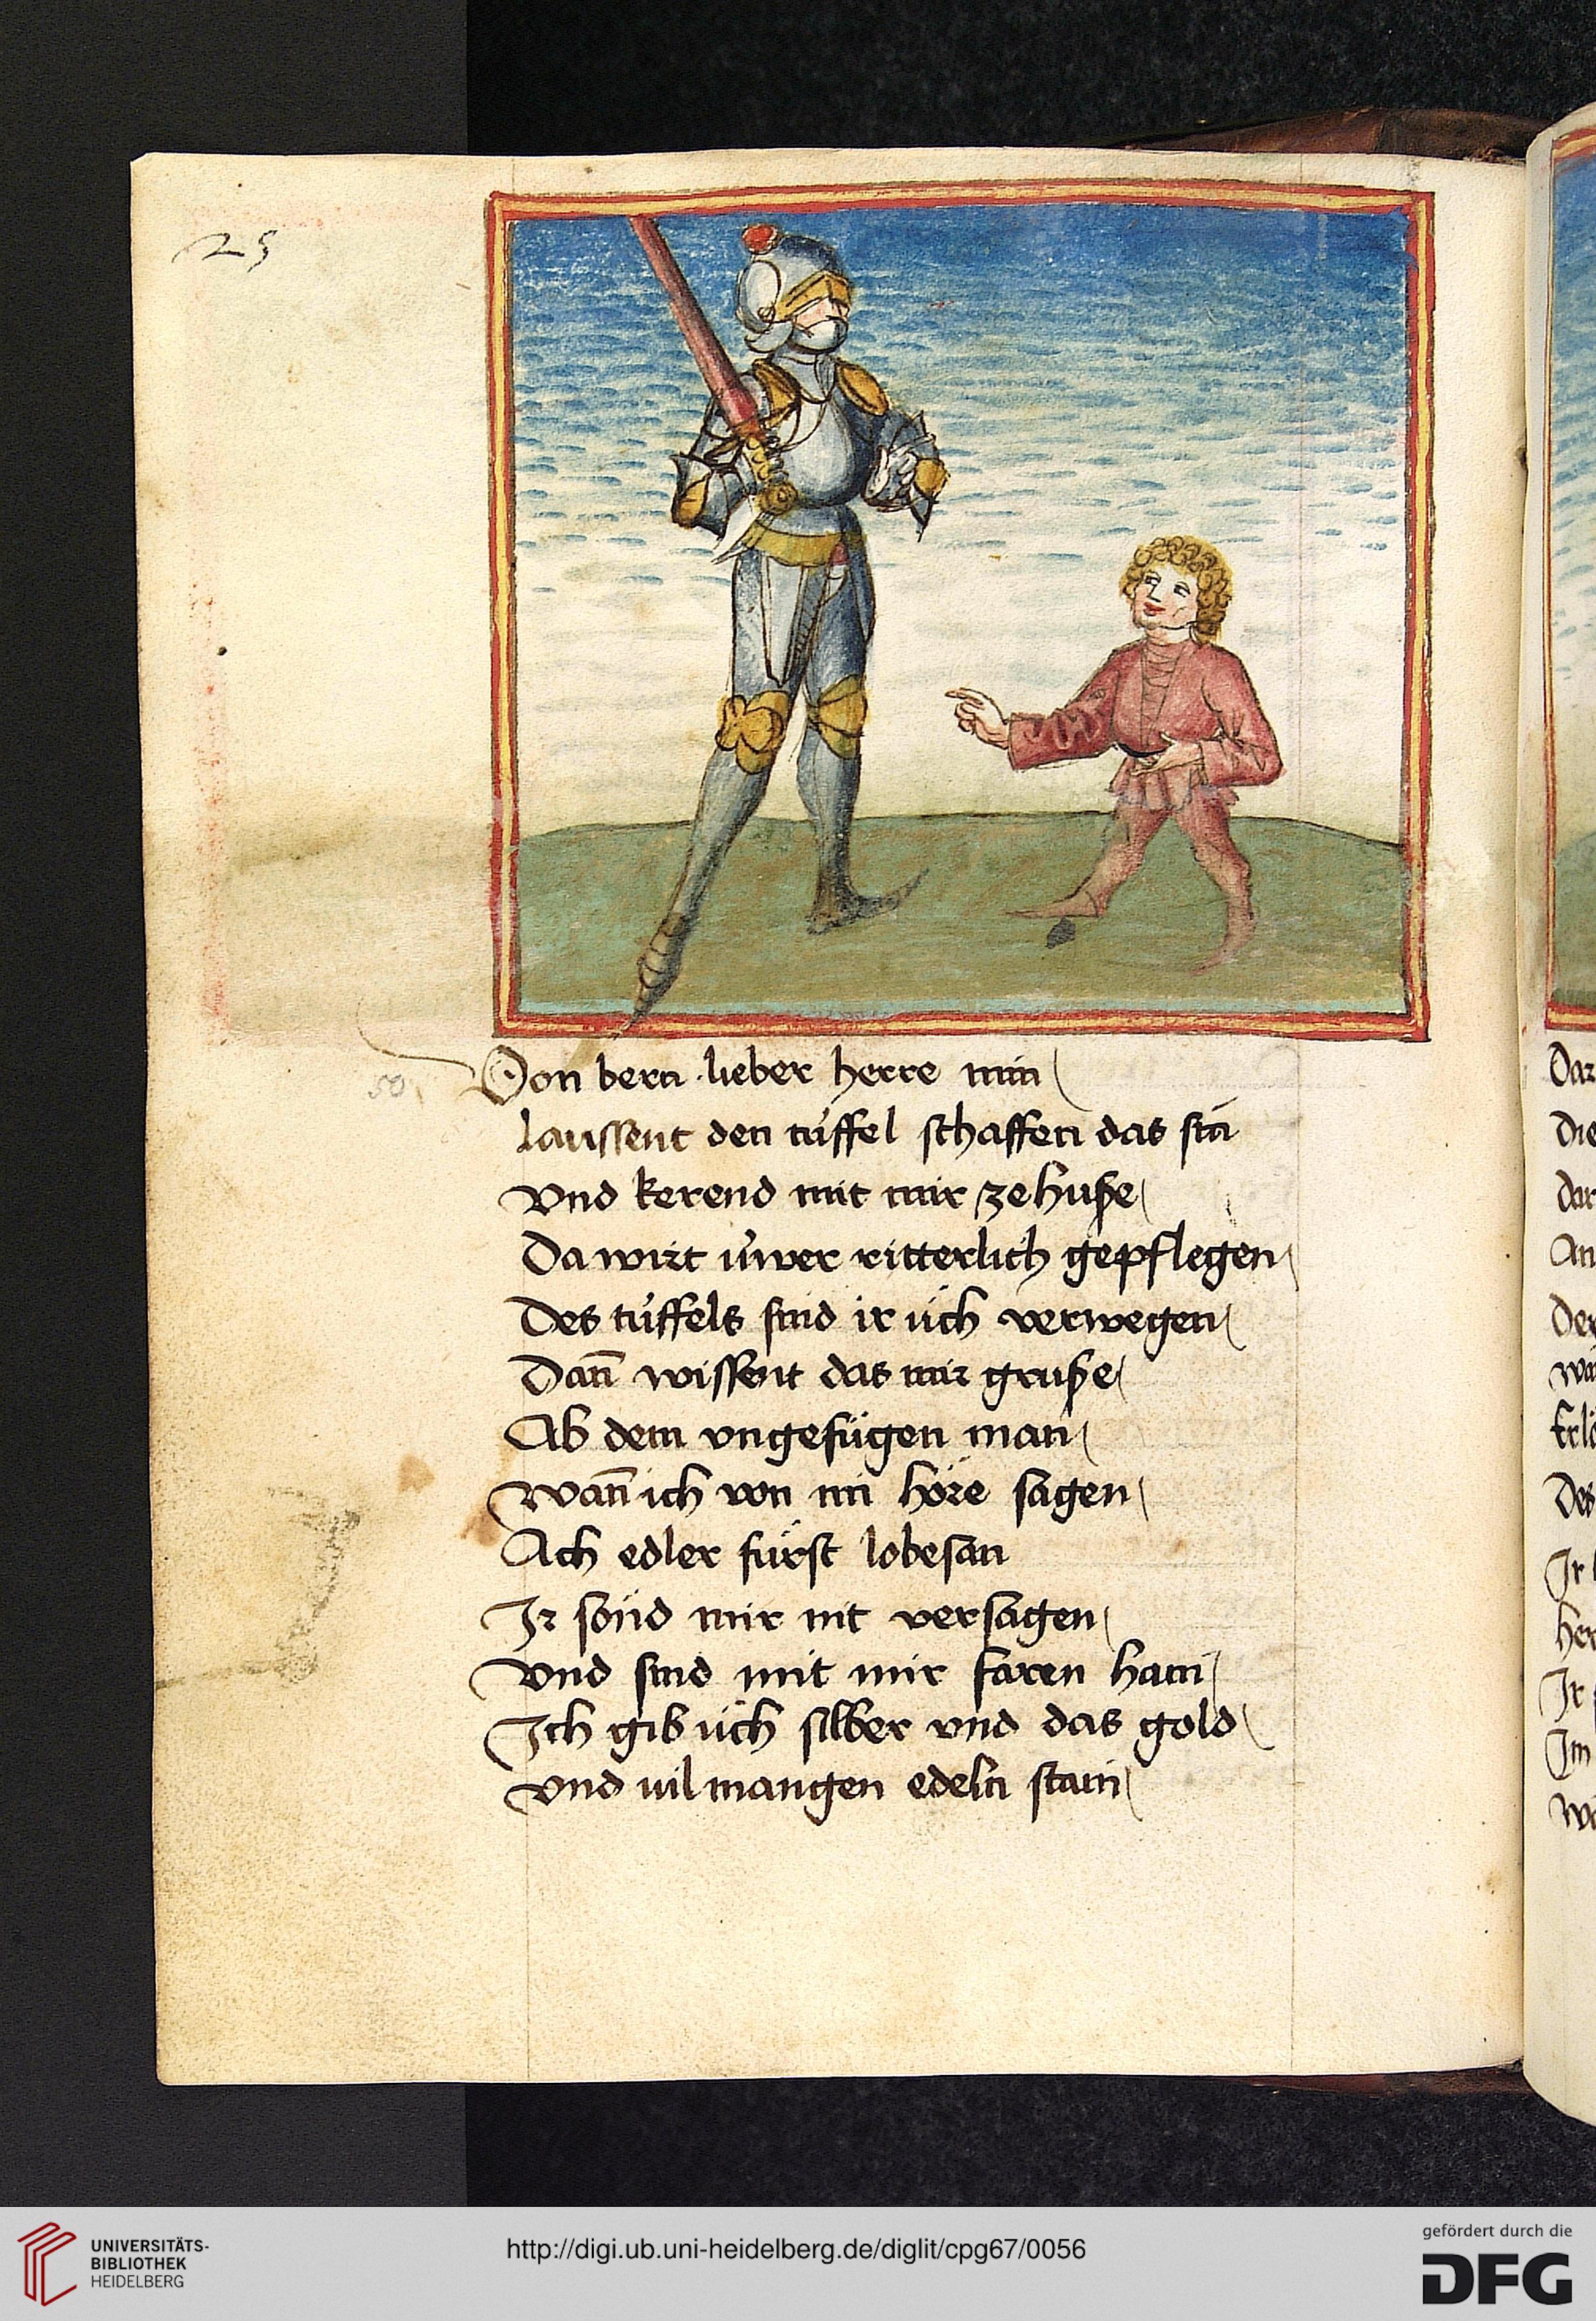 25
50
Von bern lieber herre min
laussent den tüffel schaffen das sin
vnd kerend mit mir ze huße
Da wirt üwer ritterlich gepflegen
Des tüffels sind ir üch verwegen
Dan̄ wissent das mir gruße
Ab dem vngefügen man
wan̄ ich von im höre sagen
Ach edler fürst lobesan
Ir sönd mir nit versagen
vnd sind mit mir faren hain
Ich gib üch silber vnd das gold
vnd uil mangen edeln stain
UNIVERSITÄTS-
BIBLIOTHEK
HEIDELBERG
http://digi.ub.uni-heidelberg.de/diglit/cpg67/0056
gefördert durch die
DFG